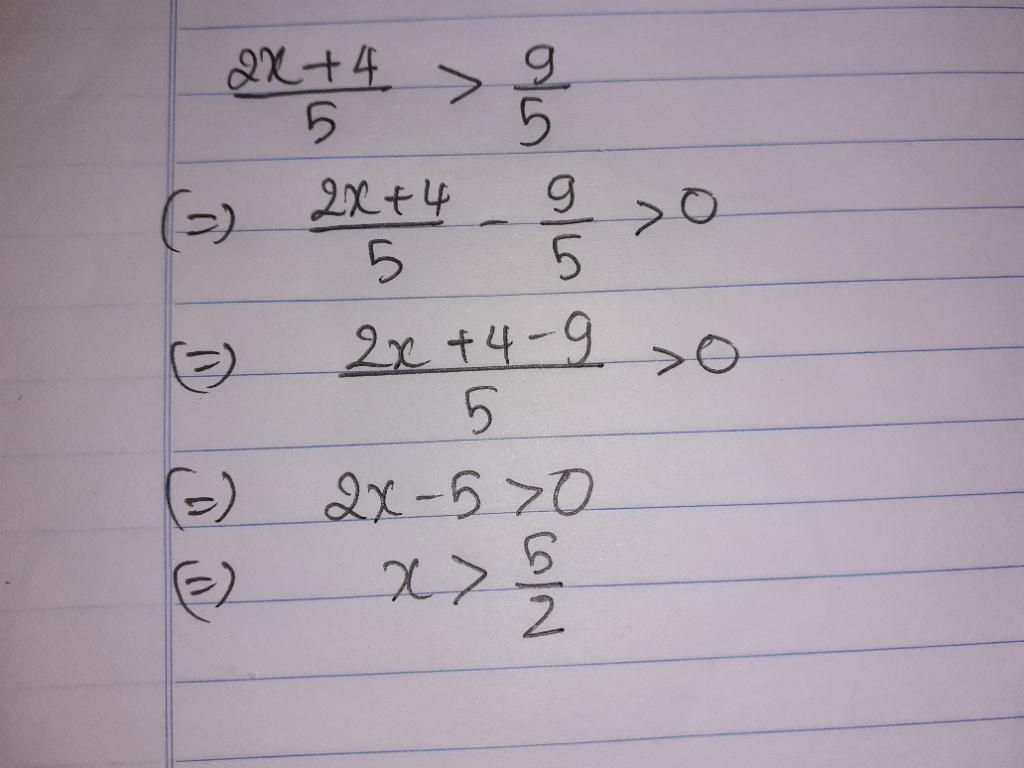 (2x+4)/5 > 9/5
(=) (2x+4)/5 - 9/5 >0
(=) (2x+4-9)/5 >0
(=) 2x-5>0
(=) x > 5/2